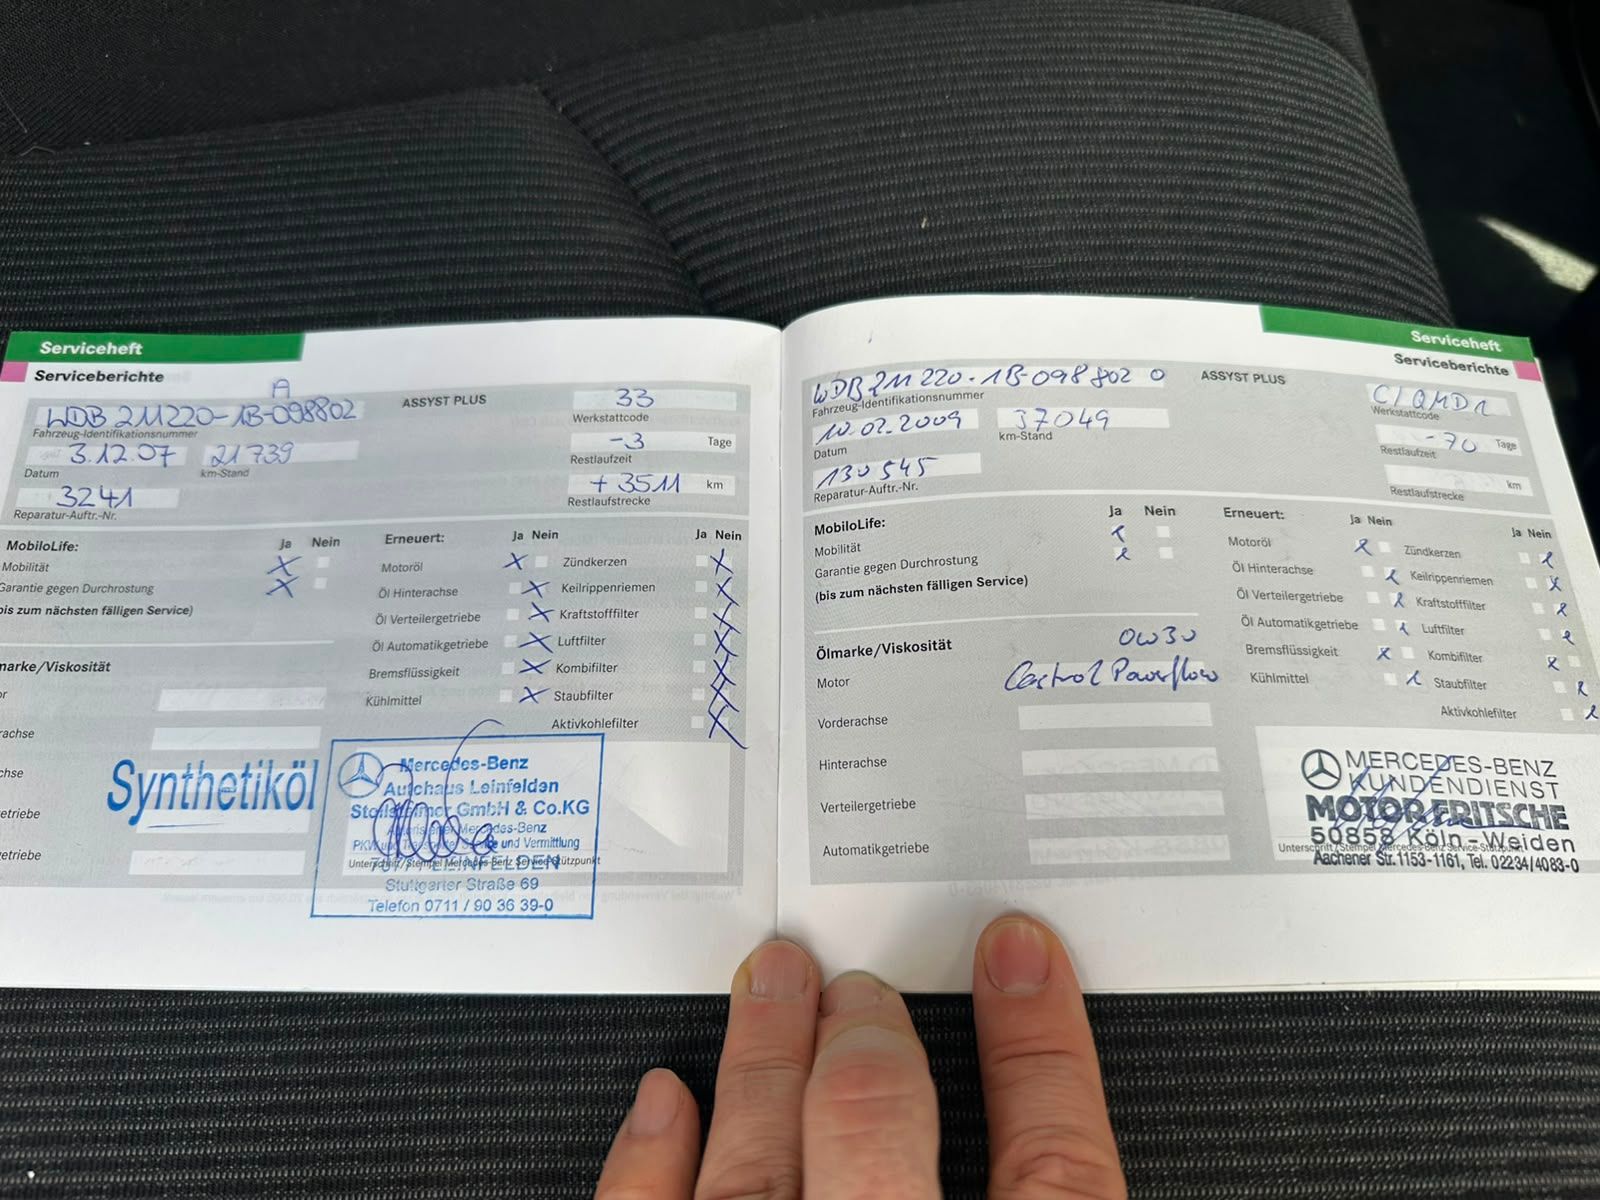 Serviceheft
Serviceberichte
A
WDB 211220-1B-098802
Fahrzeug-Identifikationsnummer
ASSYST PLUS
33
Werkstattcode
3.12.07
Datum
21739
km-Stand
-3 Tage
Restlaufzeit
3241
Reparatur-Auftr.-Nr.
+ 3511 km
Restlaufstrecke
MobiloLife:
Ja Nein
Mobilität X
Garantie gegen Durchrostung X
bis zum nächsten fälligen Service)
Erneuert:
Ja Nein
Ja Nein
Motoröl X
Zündkerzen X
Öl Hinterachse X
Keilrippenriemen X
Öl Verteilergetriebe X
Kraftstofffilter X
Öl Automatikgetriebe X
Luftfilter X
Bremsflüssigkeit X
Kombifilter X
Kühlmittel X
Staubfilter X
Aktivkohlefilter X
marke/Viskosität
or
rachse
hse
etriebe
getriebe
Synthetiköl
Mercedes-Benz
Autohaus Leinfelden
GmbH & Co.KG
Mercedes-Benz
PKW und Service und Vermittlung
Unterschrift/Stempel Mercedes-Benz Service-Stützpunkt
LEINFELDEN
Stuttgarter Straße 69
Telefon 0711 / 90 36 39-0
Serviceheft
Serviceberichte
WDB 211 220-1B-098802 0
Fahrzeug-Identifikationsnummer
ASSYST PLUS
Werkstattcode
10.02.2009
Datum
37049
km-Stand
-70 Tage
Restlaufzeit
130545
Reparatur-Auftr.-Nr.
km
Restlaufstrecke
MobiloLife:
Ja Nein
Mobilität
Garantie gegen Durchrostung
(bis zum nächsten fälligen Service)
Erneuert:
Ja Nein
Ja Nein
Motoröl
Zündkerzen
Öl Hinterachse
Keilrippenriemen
Öl Verteilergetriebe
Kraftstofffilter
Öl Automatikgetriebe
Luftfilter
Bremsflüssigkeit
Kombifilter
Kühlmittel
Staubfilter
Aktivkohlefilter
Ölmarke/Viskosität
0W30
Motor
Castrol Powerflow
Vorderachse
Hinterachse
Verteilergetriebe
Automatikgetriebe
MERCEDES-BENZ
KUNDENDIENST
MOTOR FRITSCHE
50858 Köln-Weiden
Unterschrift/Stempel Mercedes-Benz Service-Stützpunkt
Aachener Str. 1153-1161, Tel. 02234/4083-0